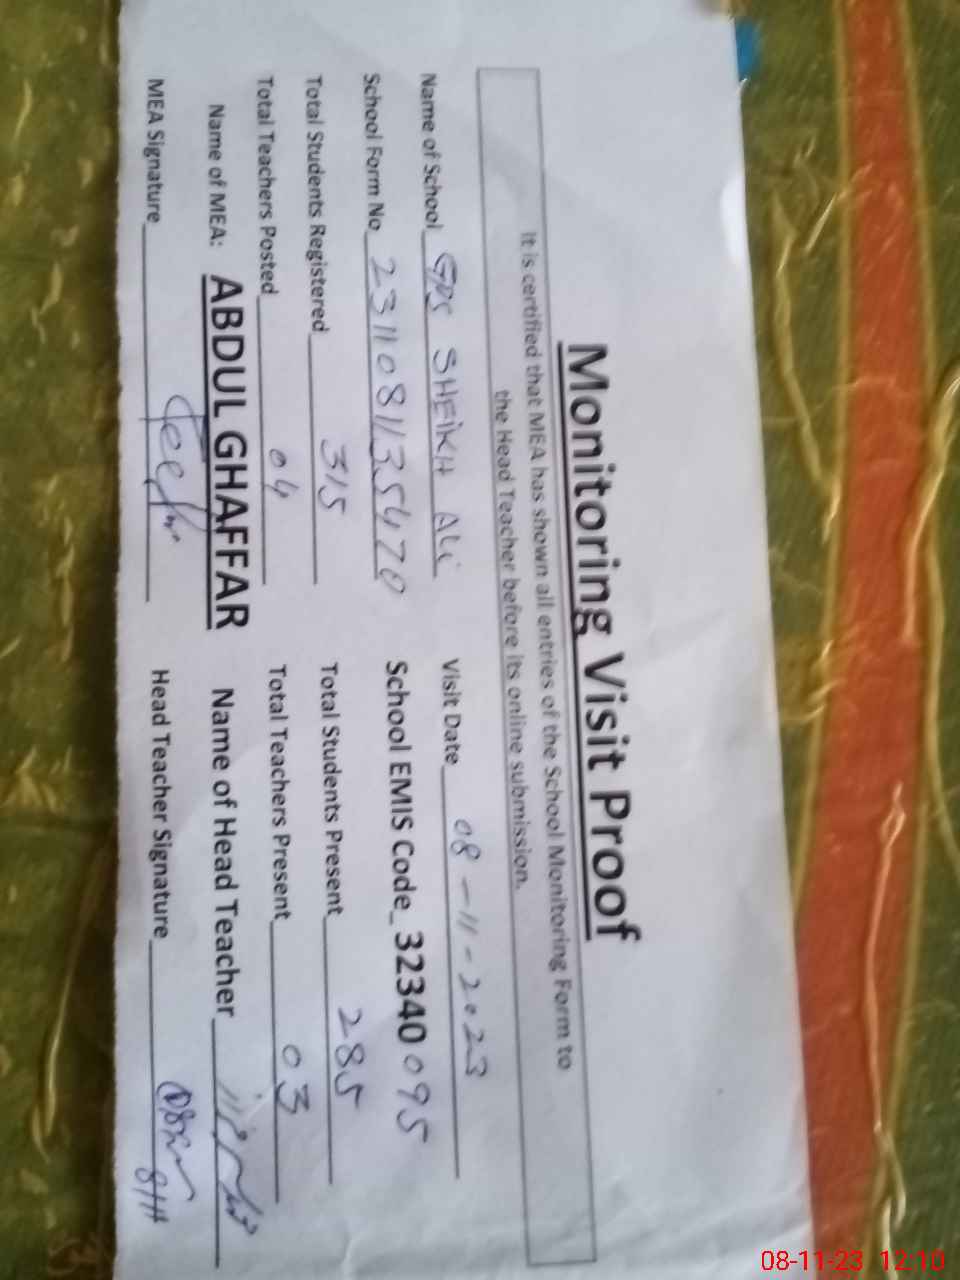 Monitoring Visit Proof
It is certified that MEA has shown all entries of the School Monitoring Form to
the Head Teacher before its online submission.
Name of School GPS SHEIKH ALI Visit Date 08-11-2023
School Form No 2311081135470 School EMIS Code_ 32340095
Total Students Registered 315 Total Students Present 285
Total Teachers Posted 04 Total Teachers Present 03
Name of MEA: ABDUL GHAFFAR Name of Head Teacher
MEA Signature Head Teacher Signature
8/11
08-11-23 12:10